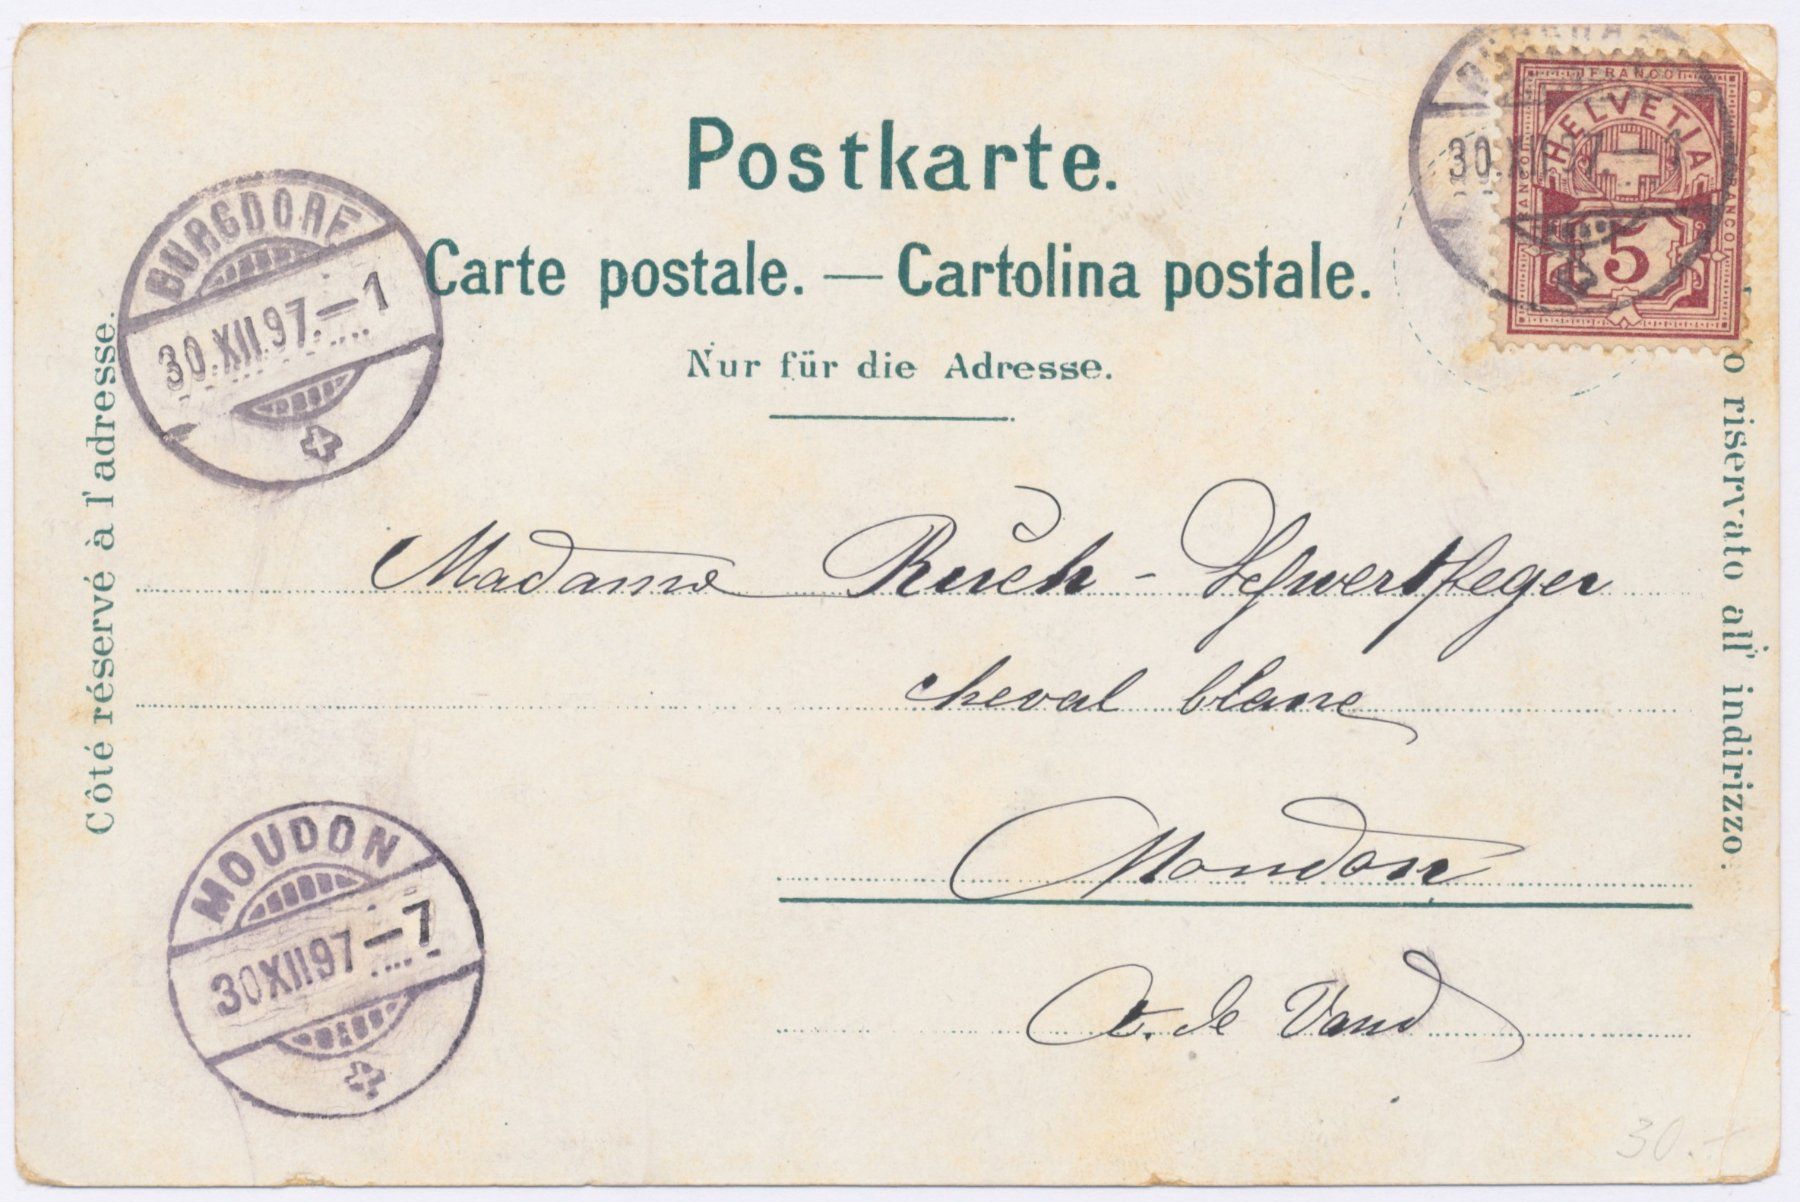 Postkarte.
Carte postale. — Cartolina postale.
Nur für die Adresse.
Côté réservé à l'adresse.
o riservato all' indirizzo.
BURGDORF
30.XII.97.—1
MOUDON
30XII97—7
30.XII.97.—
FRANCO
HELVETIA
5
Madame Ruch - Schwertfeger
cheval blanc
Moudon
Ct. de Vaud
30.-